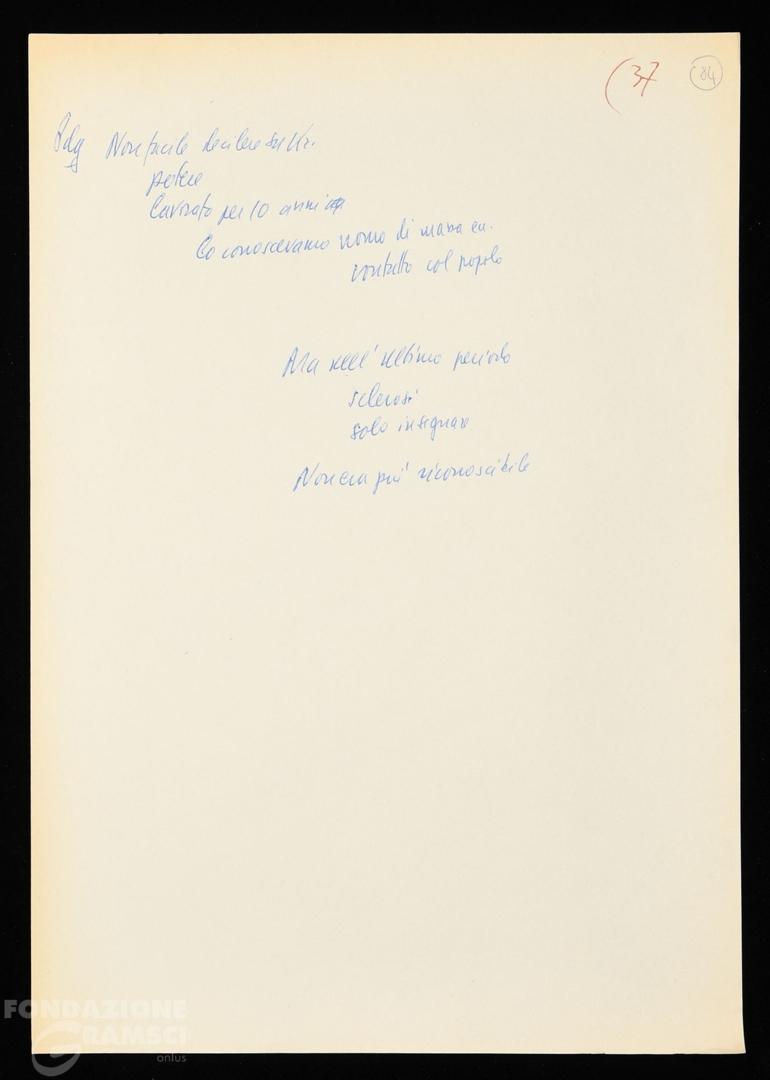 (37 84
Pdg Non facile decidere su Kr.
potere
Lavorato per 10 anni
Lo conoscevamo uomo di massa en.
contatto col popolo
Ma nell'ultimo periodo
sclerosi
solo insegnare
Non era più riconoscibile
FONDAZIONE
GRAMSCI
onlus